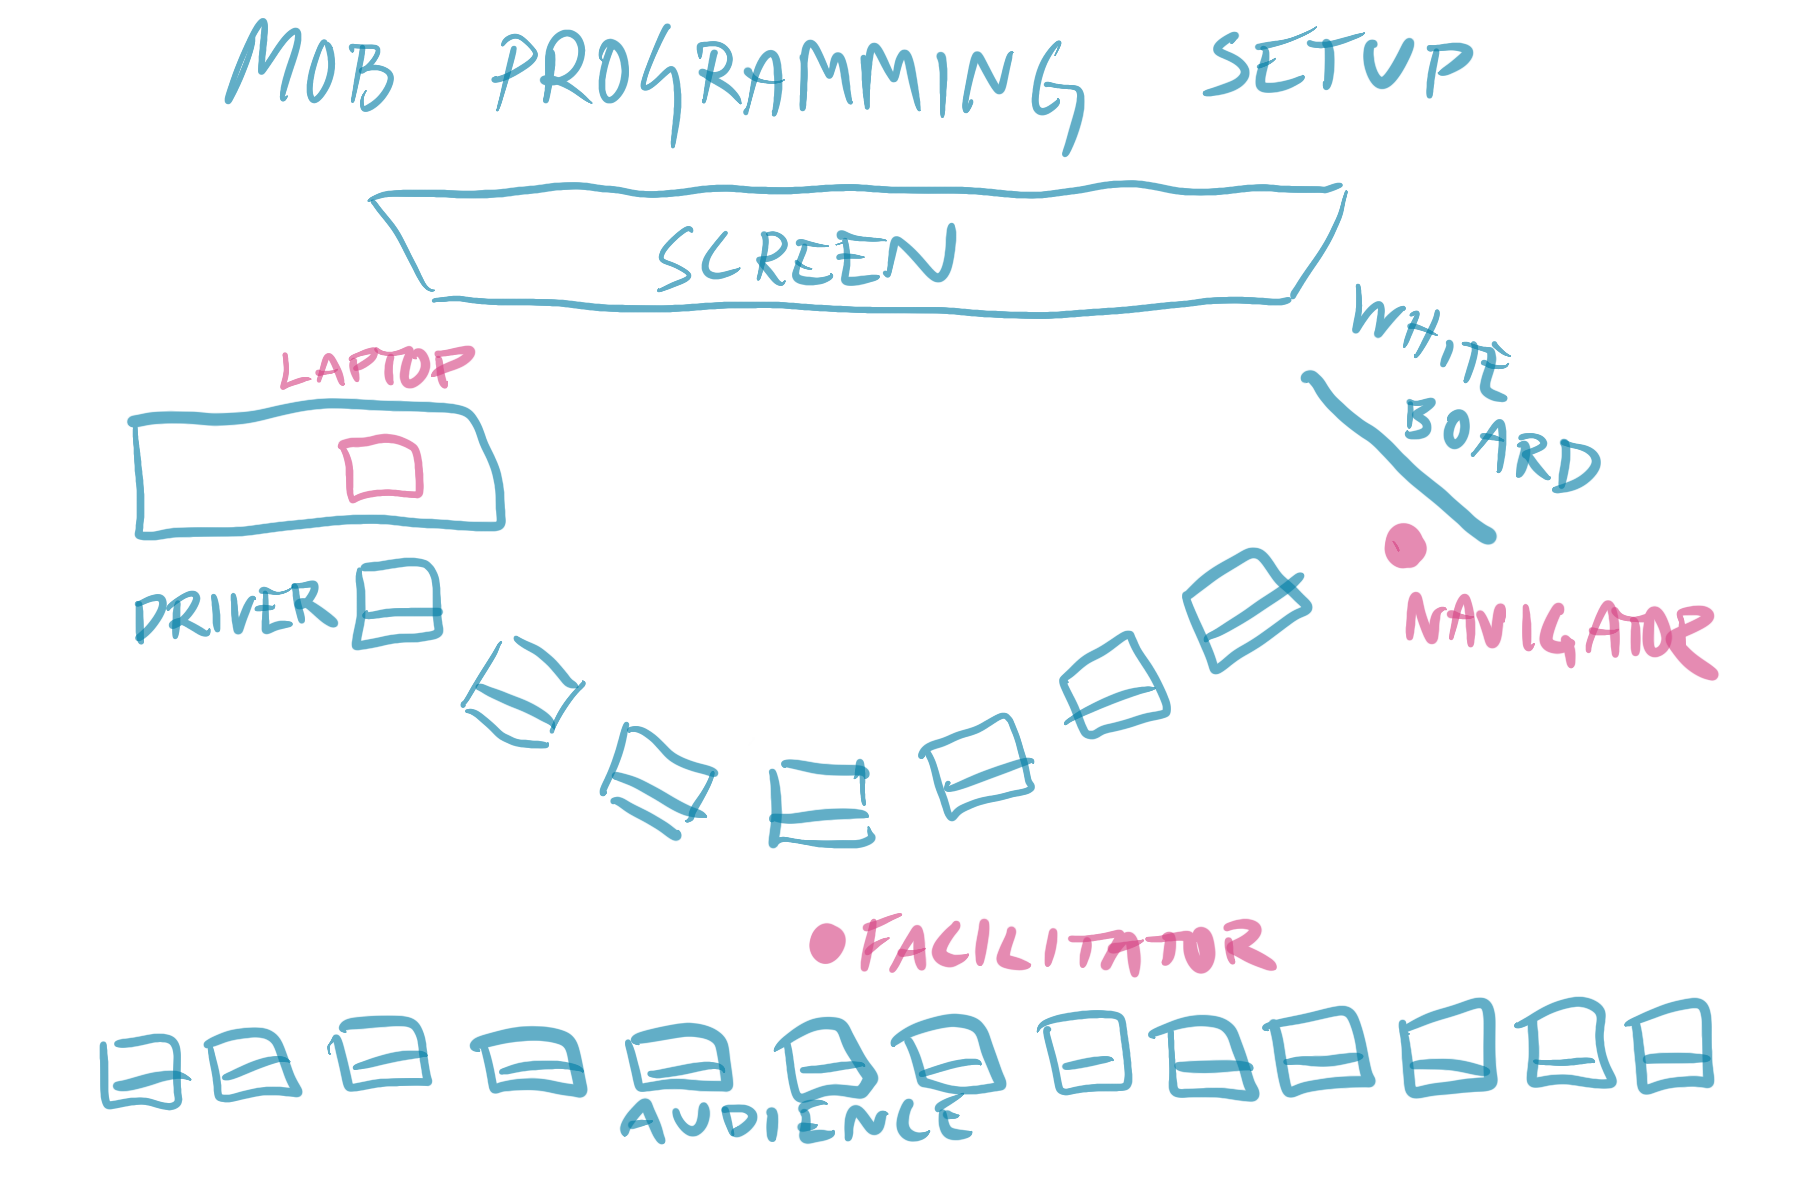 MOB PROGRAMMING SETUP
SCREEN
WHITE
BOARD
LAPTOP
DRIVER
NAVIGATOR
FACILITATOR
AUDIENCE